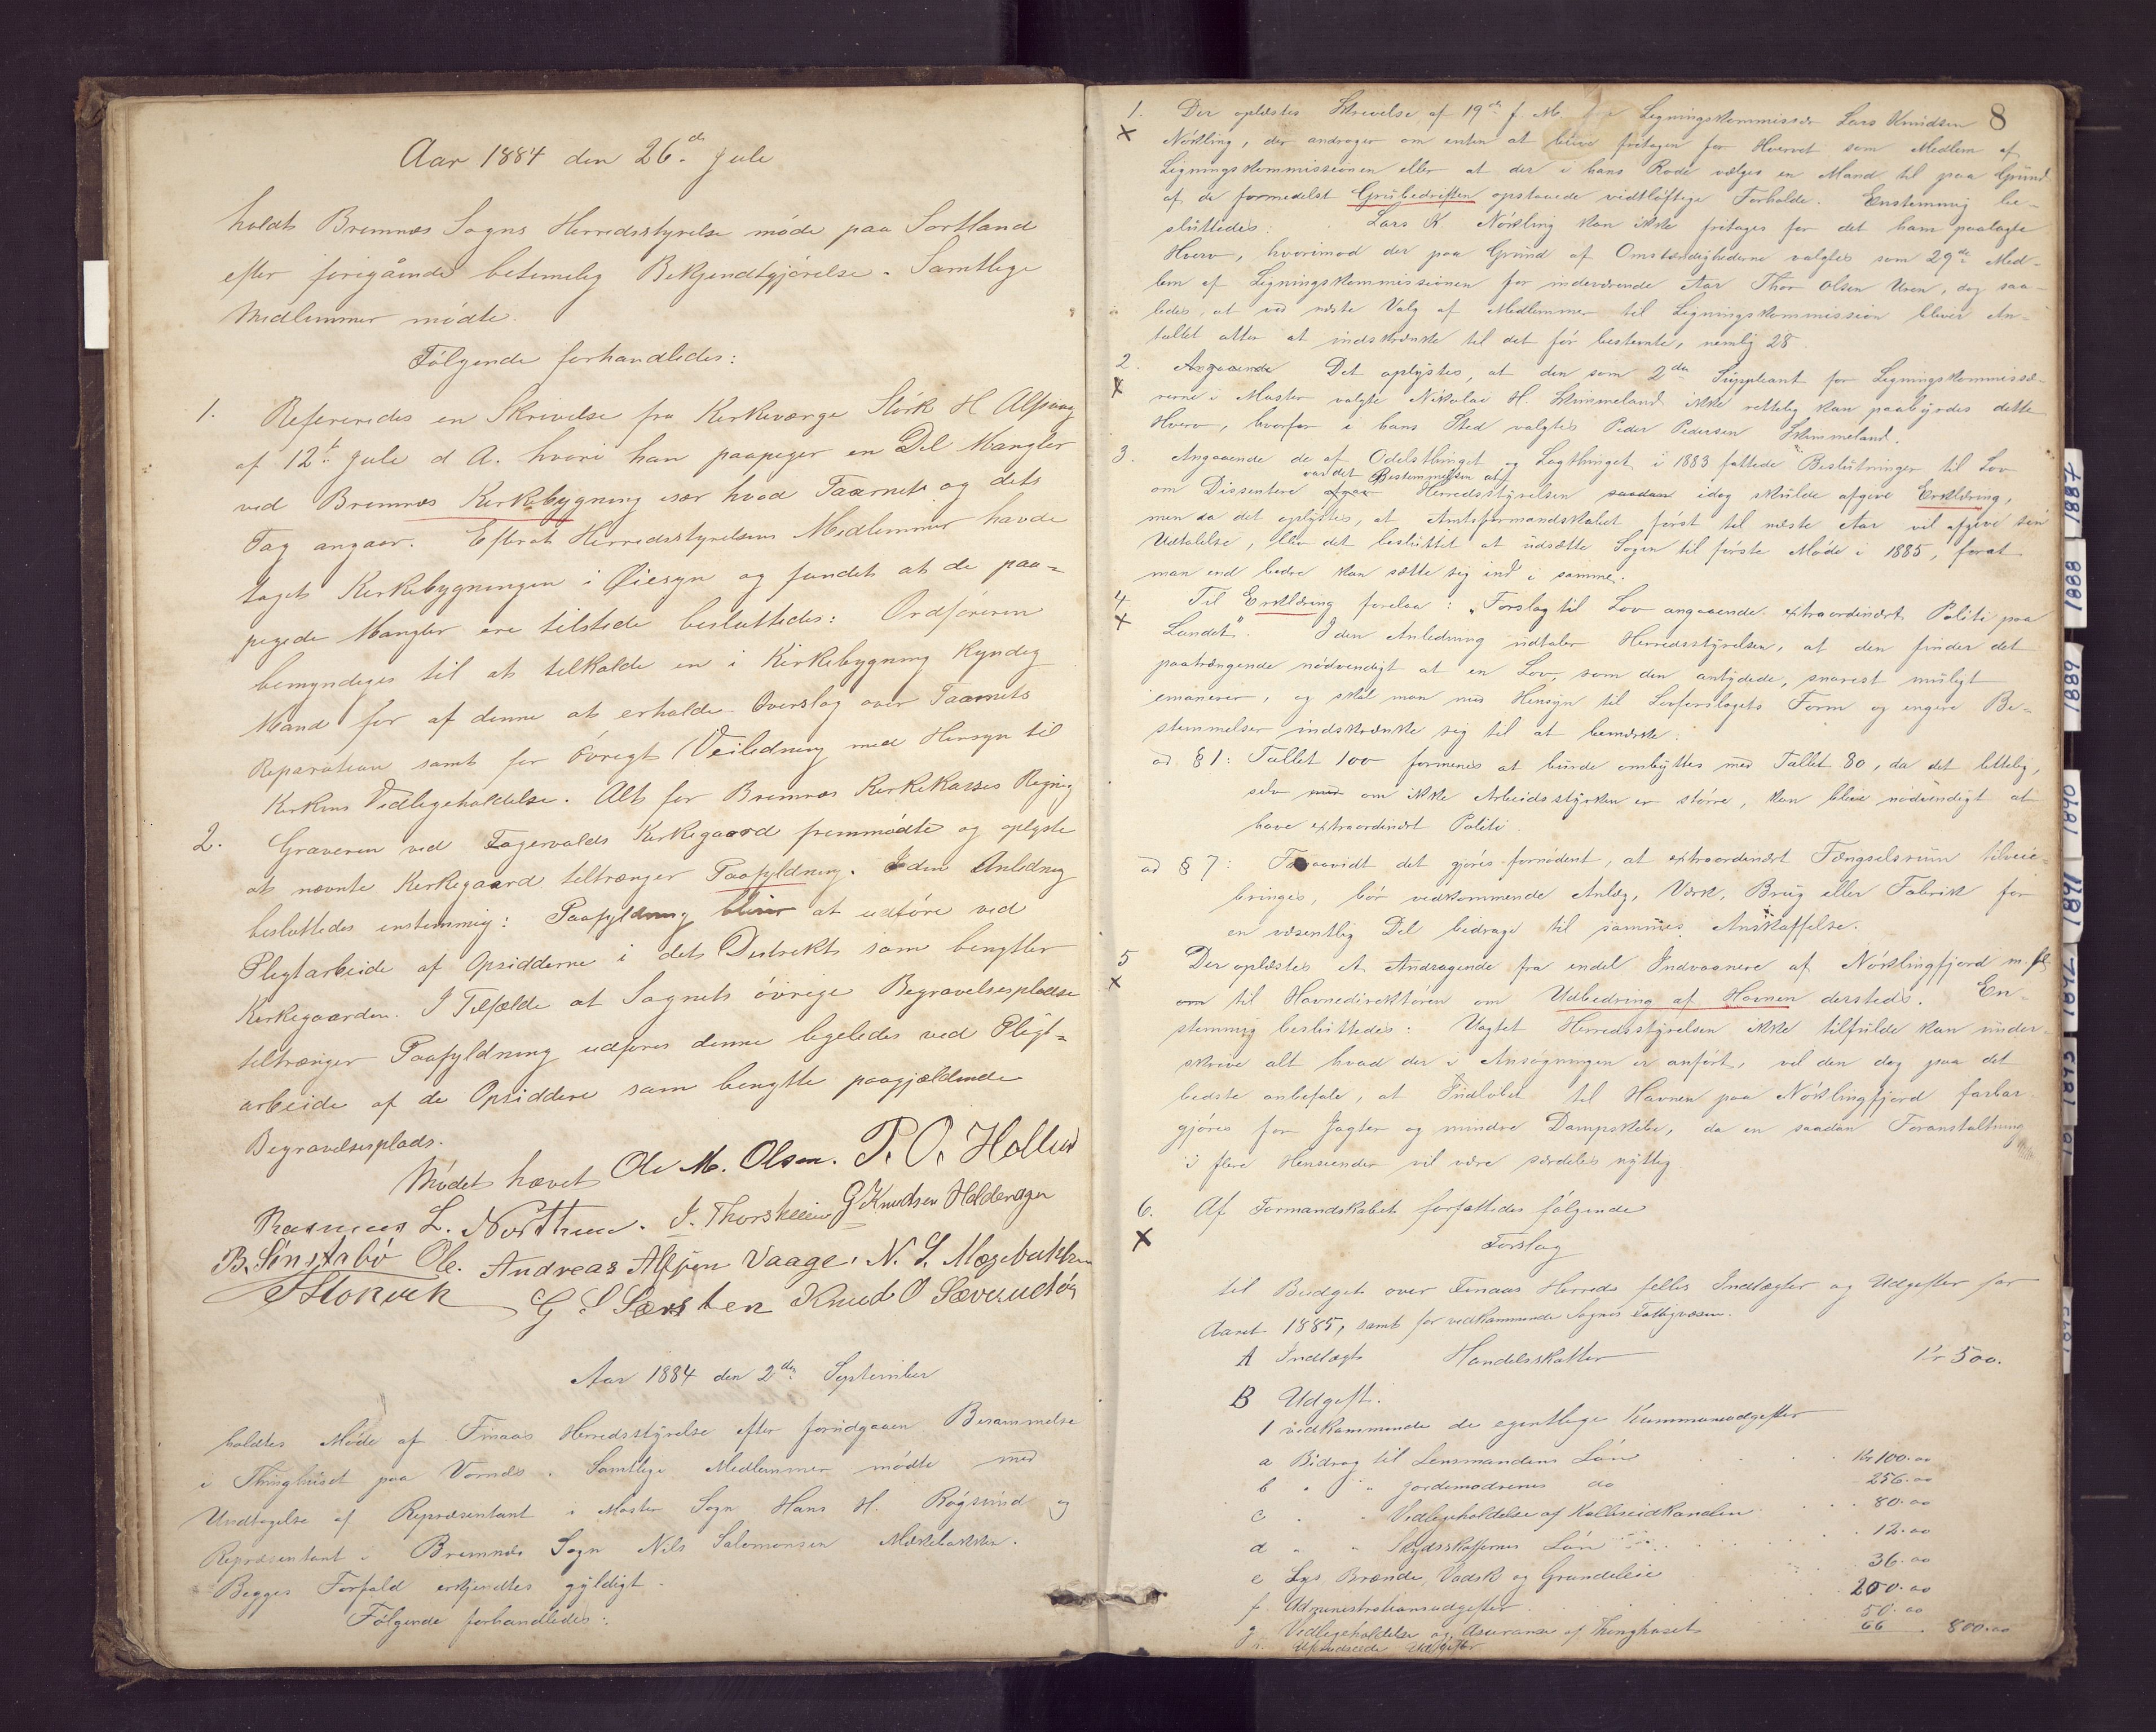 Aar 1884 den 26de Juli
holdt Bremnæs Sogns Herredsstyrelse møde paa Sortland
efter foregående betimelig Bekjendtgjørelse. Samtlige
Medlemmer mødte.
Følgende forhandledes:
1. Refereredes en Skrivelse fra Kirkeværge Størk H Alfsvaag
af 12te Juli d A. hvori han paapeger en Del Mangler
ved Bremnæs Kirkebygning især hvad Taarnet og dets
Tag angaar. Efterat Herredsstyrelsens Medlemmer havde
taget Kirkebygningen i Øiesyn og fundet at de paa=
pegede Mangler ere tilstede besluttedes: Ordføreren
bemyndiges til at tilkalde en i Kirkebygning kyndig
Mand for af denne at erholde Overslag over Taarnets
Reparation samt for øvrigt Veiledning med Hensyn til
Kirkens Vedligeholdelse. Alt for Bremnæs Kirkekasses Regnig
2. Graveren ved Fagervolds Kirkegaard fremmødte og oplyste
at nævnte Kirkegaard tiltrænger Paafyldning. I den Anledning
besluttedes enstemmig: Paafyldning bliver at udføre ved
Pligtarbeide af Opsidderne i det Distrikt som benytter
Kirkegaarden. I Tilfælde at Sognets øvrige Begravelsespladse
tiltrænger Paafyldning udføres denne ligeledes ved Pligt=
arbeide af de Opsiddere som benytte paagjældende
Begravelsesplads.
Mødet hævet Ole M. Olsen. P. O. Hollund
Rasmus L. Nortun. J. Thorsteinsen G Knudsen Holderager
B. Sønstabø Ole. Andreas Alfsen Vaage. N. S. Mægebakken
G S Særsten Knud O Sæverudsøy
Aar 1884 den 2den September
holdtes Møde af Finaas Herredsstyrelse efter forudgaaen Berammelse
i Thinghuset paa Vornæs. Samtlige Medlemmer mødte med
Undtagelse af Repræsentant i Moster Sogn Hans H. Røgsund og
Repræsentant i Bremnæs Sogn Nils Salomonsen Mækebakken.
Begges Forfald erkjendtes gyldigt.
Følgende forhandledes:
8
1. Der oplæstes Skrivelse af 19de f. M. fra Ligningskommissær Lars Knudsen
Nøkling, der androger om enten at blive fritagen for Hvervet som Medlem af
Ligningskommissionen eller at der i hans Rode vælges en Mand til paa Grund
af de formedelst Grubedriften opstaaede vidtløftige Forholde. Enstemmig be-
sluttedes: Lars K. Nøkling kan ikke fritages for det ham paalagte
Hverv, hvorimod der paa Grund af Omstændighederne valgtes som 29de Med-
lem af Ligningskommissionen for indeværende Aar Thor Olsen Uren, dog saa-
ledes, at ved næste Valg af Medlemmer til Ligningskommission bliver An-
tallet atter at indskrænke til det før bestemte, nemlig 28.
2. Angaaende Det oplystes, at den som 2den Suppleant for Ligningskommissæ-
rerne i Moster valgte Nikolai H. Skimmeland ikke rettelig kan paabyrdes dette
Hverv, hvorfor i hans Sted valgtes Peder Pedersen Skimmeland.
3. Angaaende de af Odelsthinget og Lagthinget i 1883 fattede Beslutninger til Lov
var det Bestemmelsen at
om Dissentere afgav Herredsstyrelsen saadan idag skulde afgive Erklæring,
men da det oplystes, at Amtsformandskabet først til næste Aar vil afgive sin
Udtalelse, blev det besluttet at udsætte Sagen til første Møde i 1885, forat
man end bedre kan sætte sig ind i samme.
4. Til Erklæring forelaa: „Forslag til Lov angaaende extraordinært Politi paa
Landet“. I den Anledning udtaler Herredsstyrelsen, at den finder det
paatrængende nødvendigt at en Lov, som den antydede, snarest muligt
emanerer, og skal man med Hensyn til Lovforslagets Form og øvrige Be-
stemmelser indskrænke sig til at bemærke:
ad § 1: Tallet 100 formenes at burde ombyttes med Tallet 80, da det lettelig,
selv med om ikke Arbeidsstyrken er større, kan blive nødvendigt at
have extraordinært Politi.
ad § 7: Forsaavidt det gjøres fornødent, at extraordinært Fængselsrum tilveie-
bringes, bør vedkommende Anlæg, Værk, Brug eller Fabrik for
en væsentlig Del bidrage til sammes Anskaffelse.
5 Der oplæstes et Andragende fra endel Indvaanere af Nøklingfjord m. fl.
om til Havnedirektøren om Udbedring af Havnen dersteds. En-
stemmig besluttedes: Uagtet Herredsstyrelsen ikke tilfulde kan under-
skrive alt hvad der i Ansøgningen er anført, vil den dog paa det
bedste anbefale, at Indløbet til Havnen paa Nøklingfjord farbar
gjøres for Jagter og mindre Dampskibe, da en saadan Foranstaltning
i flere Henseender vil være særdeles nyttig.
6. Af Formandskabet forfattedes følgende
Forslag
til Budget over Finaas Herreds fælles Indtægter og Udgifter for
Aaret 1885, samt for vedkommende Sognes Fattigvæsen.
A Indtægt Handelsskatter Kr 500.
B Udgift.
1 vedkommende de egentlige Kommuneudgifter
a Bidrag til Lensmandens Løn Kr 100.00
b " " Jordemødrenes do 256.00
c " " Vedligeholdelse af Kalleseidkanalen 80.00
d " " Skydsskaffernes Løn 12.00
e Lys Brænde, Vadsk og Grundeleie 36.00
f Administrationsudgifter 200.00
g Vedligeholdelse og Assurance af Thinghuset 50.00
h. Uforudseede Udgifter 66 800.00
1887
1888
1889
1890
1891
1892
1893